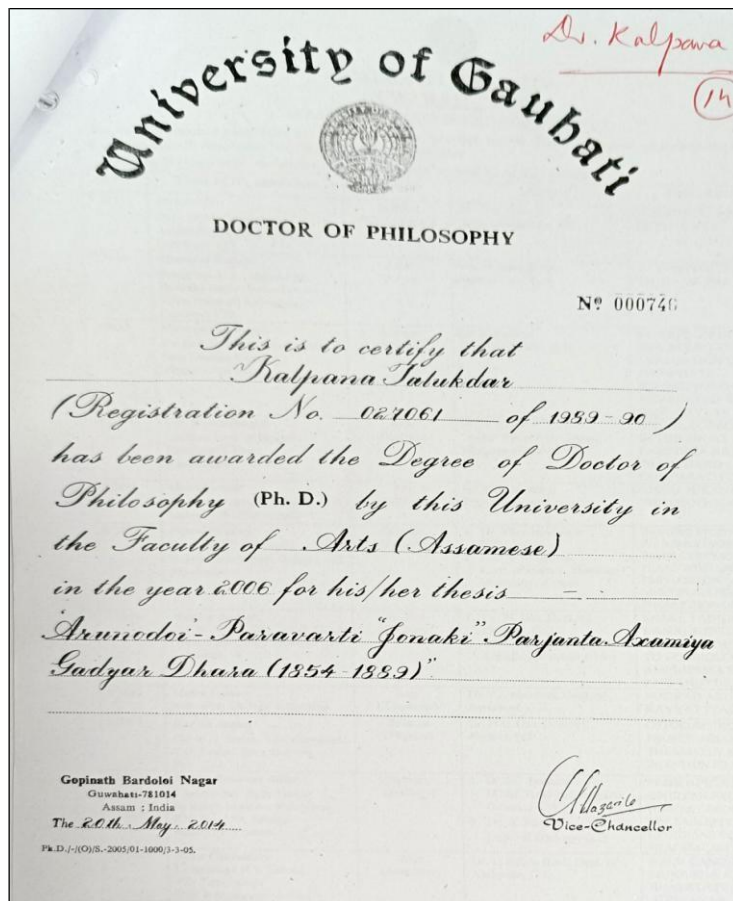 Dr. Kalpana
14
University of Gauhati
DOCTOR OF PHILOSOPHY
Nº 000746
This is to certify that
Kalpana Talukdar
(Registration No. 027061 of 1989-90)
has been awarded the Degree of Doctor of
Philosophy (Ph. D.) by this University in
the Faculty of Arts (Assamese)
in the year 2006 for his/her thesis –
'Arunodoi'- Paravarti "Jonaki" Parjanta Axamiya
Gadyar Dhara (1854-1889)"
Gopinath Bardoloi Nagar
Guwahati-781014
Assam : India
The 20th. May, 2014
Vice-Chancellor
Ph.D./-/(O)/S.-2005/01-1000/3-3-05.